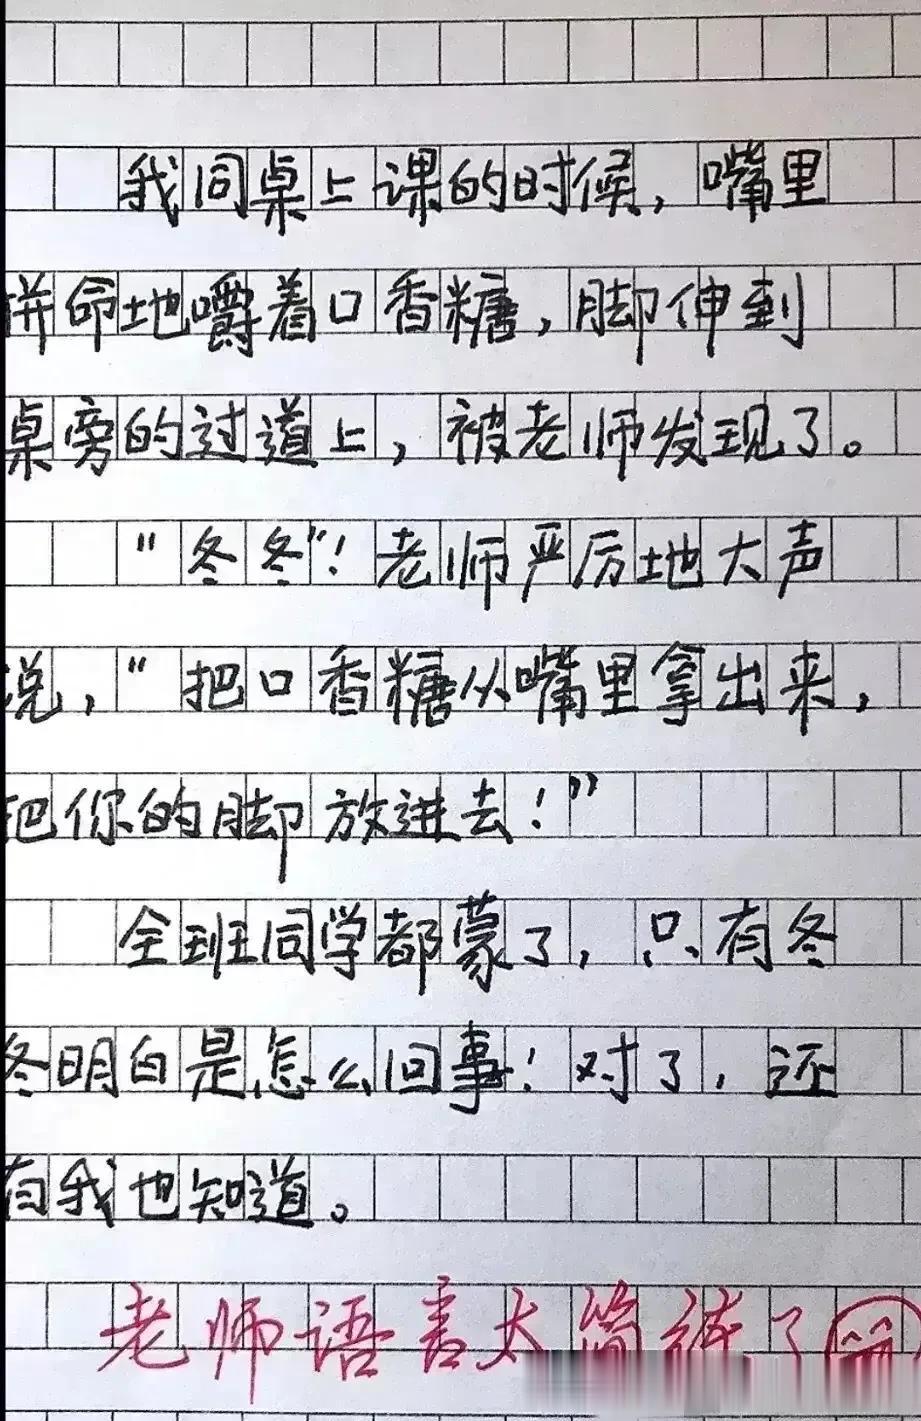 我同桌上课的时候,嘴里
拼命地嚼着口香糖,脚伸到
桌旁的过道上,被老师发现了。
“冬冬”!老师严厉地大声
说,“把口香糖从嘴里拿出来,
把你的脚放进去!”
全班同学都蒙了,只有冬
冬明白是怎么回事!对了,还
有我也知道。
老师语言太简练了